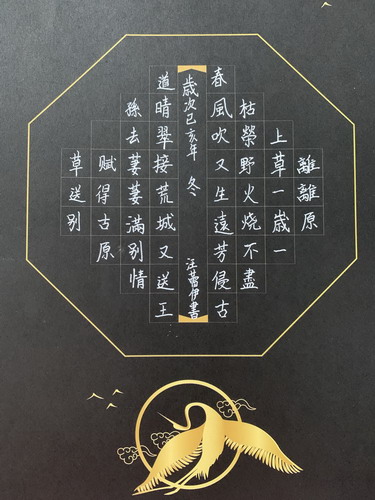 離離原
上草一歳一
枯榮野火烧不盡
春風吹又生遠芳侵古
歳次己亥年 冬 汪蕾伊書
道晴翠接荒城又送王
孫去萋萋滿别情
赋得古原
草送别